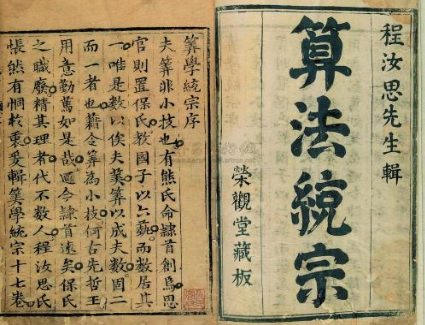 程汝思先生輯
算法統宗
榮觀堂藏板
筭學統宗序
夫筭非小技也有熊氏命隸首創為思
官則置保氏教國子以六藝而數居其
一唯是數以俟夫筭筭以成夫數固二
而一者也藉令筭為小技何古先哲王
用意勤篤如是哉邇今隸首遠矣保氏
之職廢精其理者代不數人程汝思氏
悵然有恫於衷爰輯筭學統宗十七卷